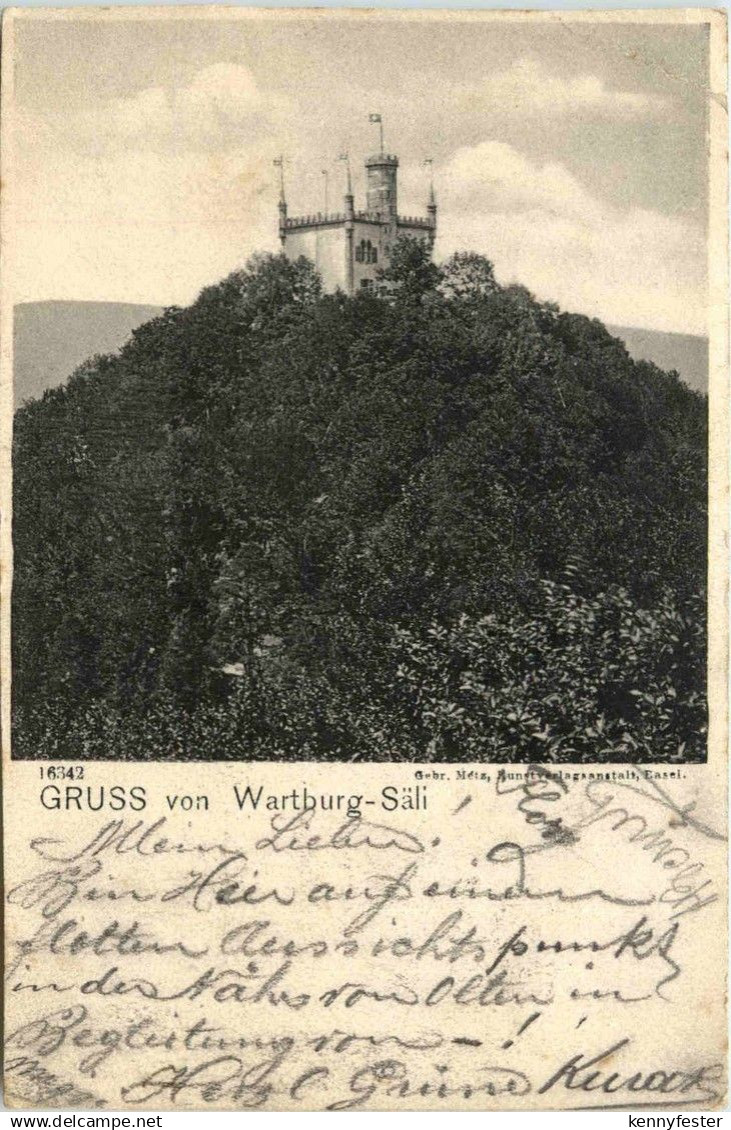 16342
Gebr. Metz, Kunstverlagsanstalt, Basel.
GRUSS von Wartburg-Säli
Mein Lieber!
Bin Hier auf einem
flotten Aussichtspunkt
in der Nähe von Olten in
Begleitung von — !
Herzl Grüsse
www.delcampe.net
kennyfester